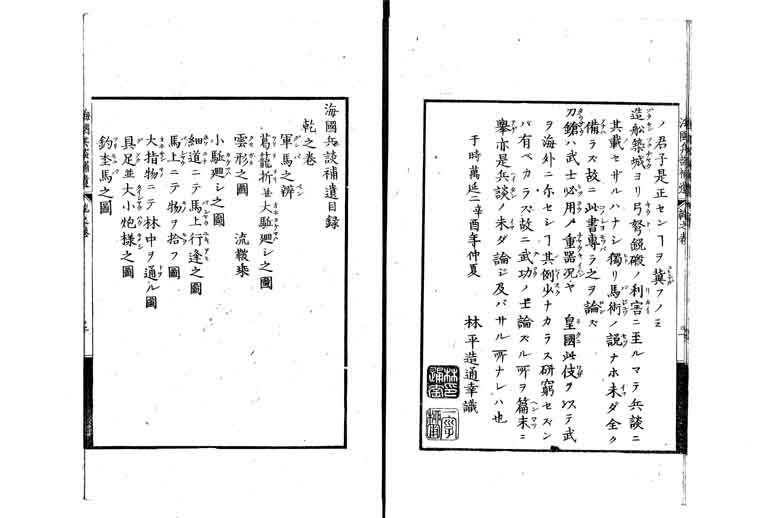 ノ君子是正センヿヲ冀フノミ
造船築城ヨリ弓弩銃砲ノ利害ニ至ルマテ兵談ニ
其載セサルハナシ獨リ馬術ノ説ナホ未ダ全ク
備ラス故ニ此書專ラ之ヲ論ス
刀鎗ハ武士必用ノ重器況ヤ 皇國此伎ヲ以テ武
ヲ海外ニ示セシヿ其例少ナカラス研窮セズン
バ有ベカラス故ニ武功ノ士論スル所ヲ篇末ニ
擧亦是兵談ノ未ダ論シ及バサル所ナレハ也
于時萬延二辛酉年仲夏
林平造通幸識
海國兵談補遺目録
乾之卷
軍馬之辨
葛籠折並大馳廻シ之圖
雲形之圖 流鞍乘
小馳廻シ之圖
細道ニテ馬上行逢之圖
馬上ニテ物ヲ拾フ圖
大指物ニテ林中ヲ通ル圖
具足並大小炮様之圖
釣埜馬之圖
海國兵談補遺